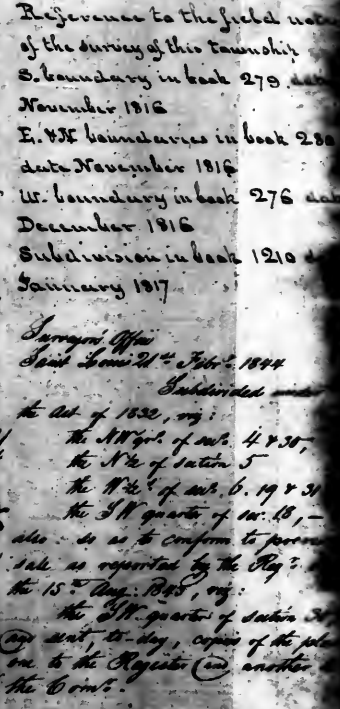 Reference to the field notes
of the survey of this township
S. boundary in book 279 date
November 1816
E. & N boundaries in book 280
date November 1816
W. boundary in book 276 date
December 1816
Subdivision in book 1210
January 1817
Surveyors Office
Saint Louis 21st Febry. 1844
Subdivided under
the Act of 1832, viz:
the NW qrs. of secs. 4 & 30,
the N½ of section 5
the W½s of secs. 6. 19 & 31
the SW quarter of sec. 18, —
also so as to conform to
sale as reported by the Regr.
the 15th Aug. 1843, viz:
the SW. quarter of section 30,
and sent, to-day, copies of the
one to the Register and another
the Comr.